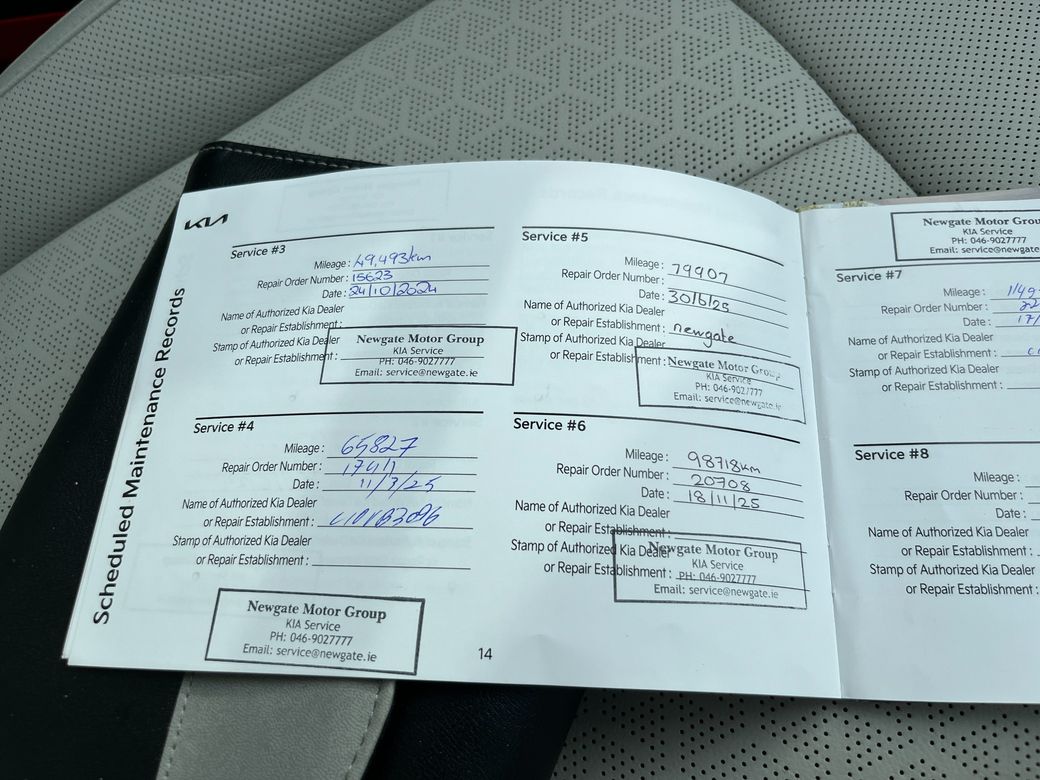 KIA
Scheduled Maintenance Records
Service #3
Mileage : 49,493km
Repair Order Number : 15623
Date : 24/10/2024
Name of Authorized Kia Dealer
or Repair Establishment :
Stamp of Authorized Kia Dealer
or Repair Establishment :
Newgate Motor Group
KIA Service
PH: 046-9027777
Email: service@newgate.ie
Service #4
Mileage : 65827
Repair Order Number :
Date : 11/3/25
Name of Authorized Kia Dealer
or Repair Establishment :
Stamp of Authorized Kia Dealer
or Repair Establishment :
Newgate Motor Group
KIA Service
PH: 046-9027777
Email: service@newgate.ie
14
Service #5
Mileage : 79907
Repair Order Number :
Date : 30/6/25
Name of Authorized Kia Dealer
or Repair Establishment : newgate
Stamp of Authorized Kia Dealer
or Repair Establishment :
Newgate Motor Group
KIA Service
PH: 046-9027777
Email: service@newgate.ie
Service #6
Mileage : 98718km
Repair Order Number : 20708
Date : 18/11/25
Name of Authorized Kia Dealer
or Repair Establishment :
Stamp of Authorized Kia Dealer
or Repair Establishment :
Newgate Motor Group
KIA Service
PH: 046-9027777
Email: service@newgate.ie
Newgate Motor Grou
KIA Service
PH: 046-9027777
Email: service@newgate.ie
Service #7
Mileage :
Repair Order Number :
Date : 17/
Name of Authorized Kia Dealer
or Repair Establishment :
Stamp of Authorized Kia Dealer
or Repair Establishment :
Service #8
Mileage :
Repair Order Number :
Date :
Name of Authorized Kia Dealer
or Repair Establishment :
Stamp of Authorized Kia Dealer
or Repair Establishment :